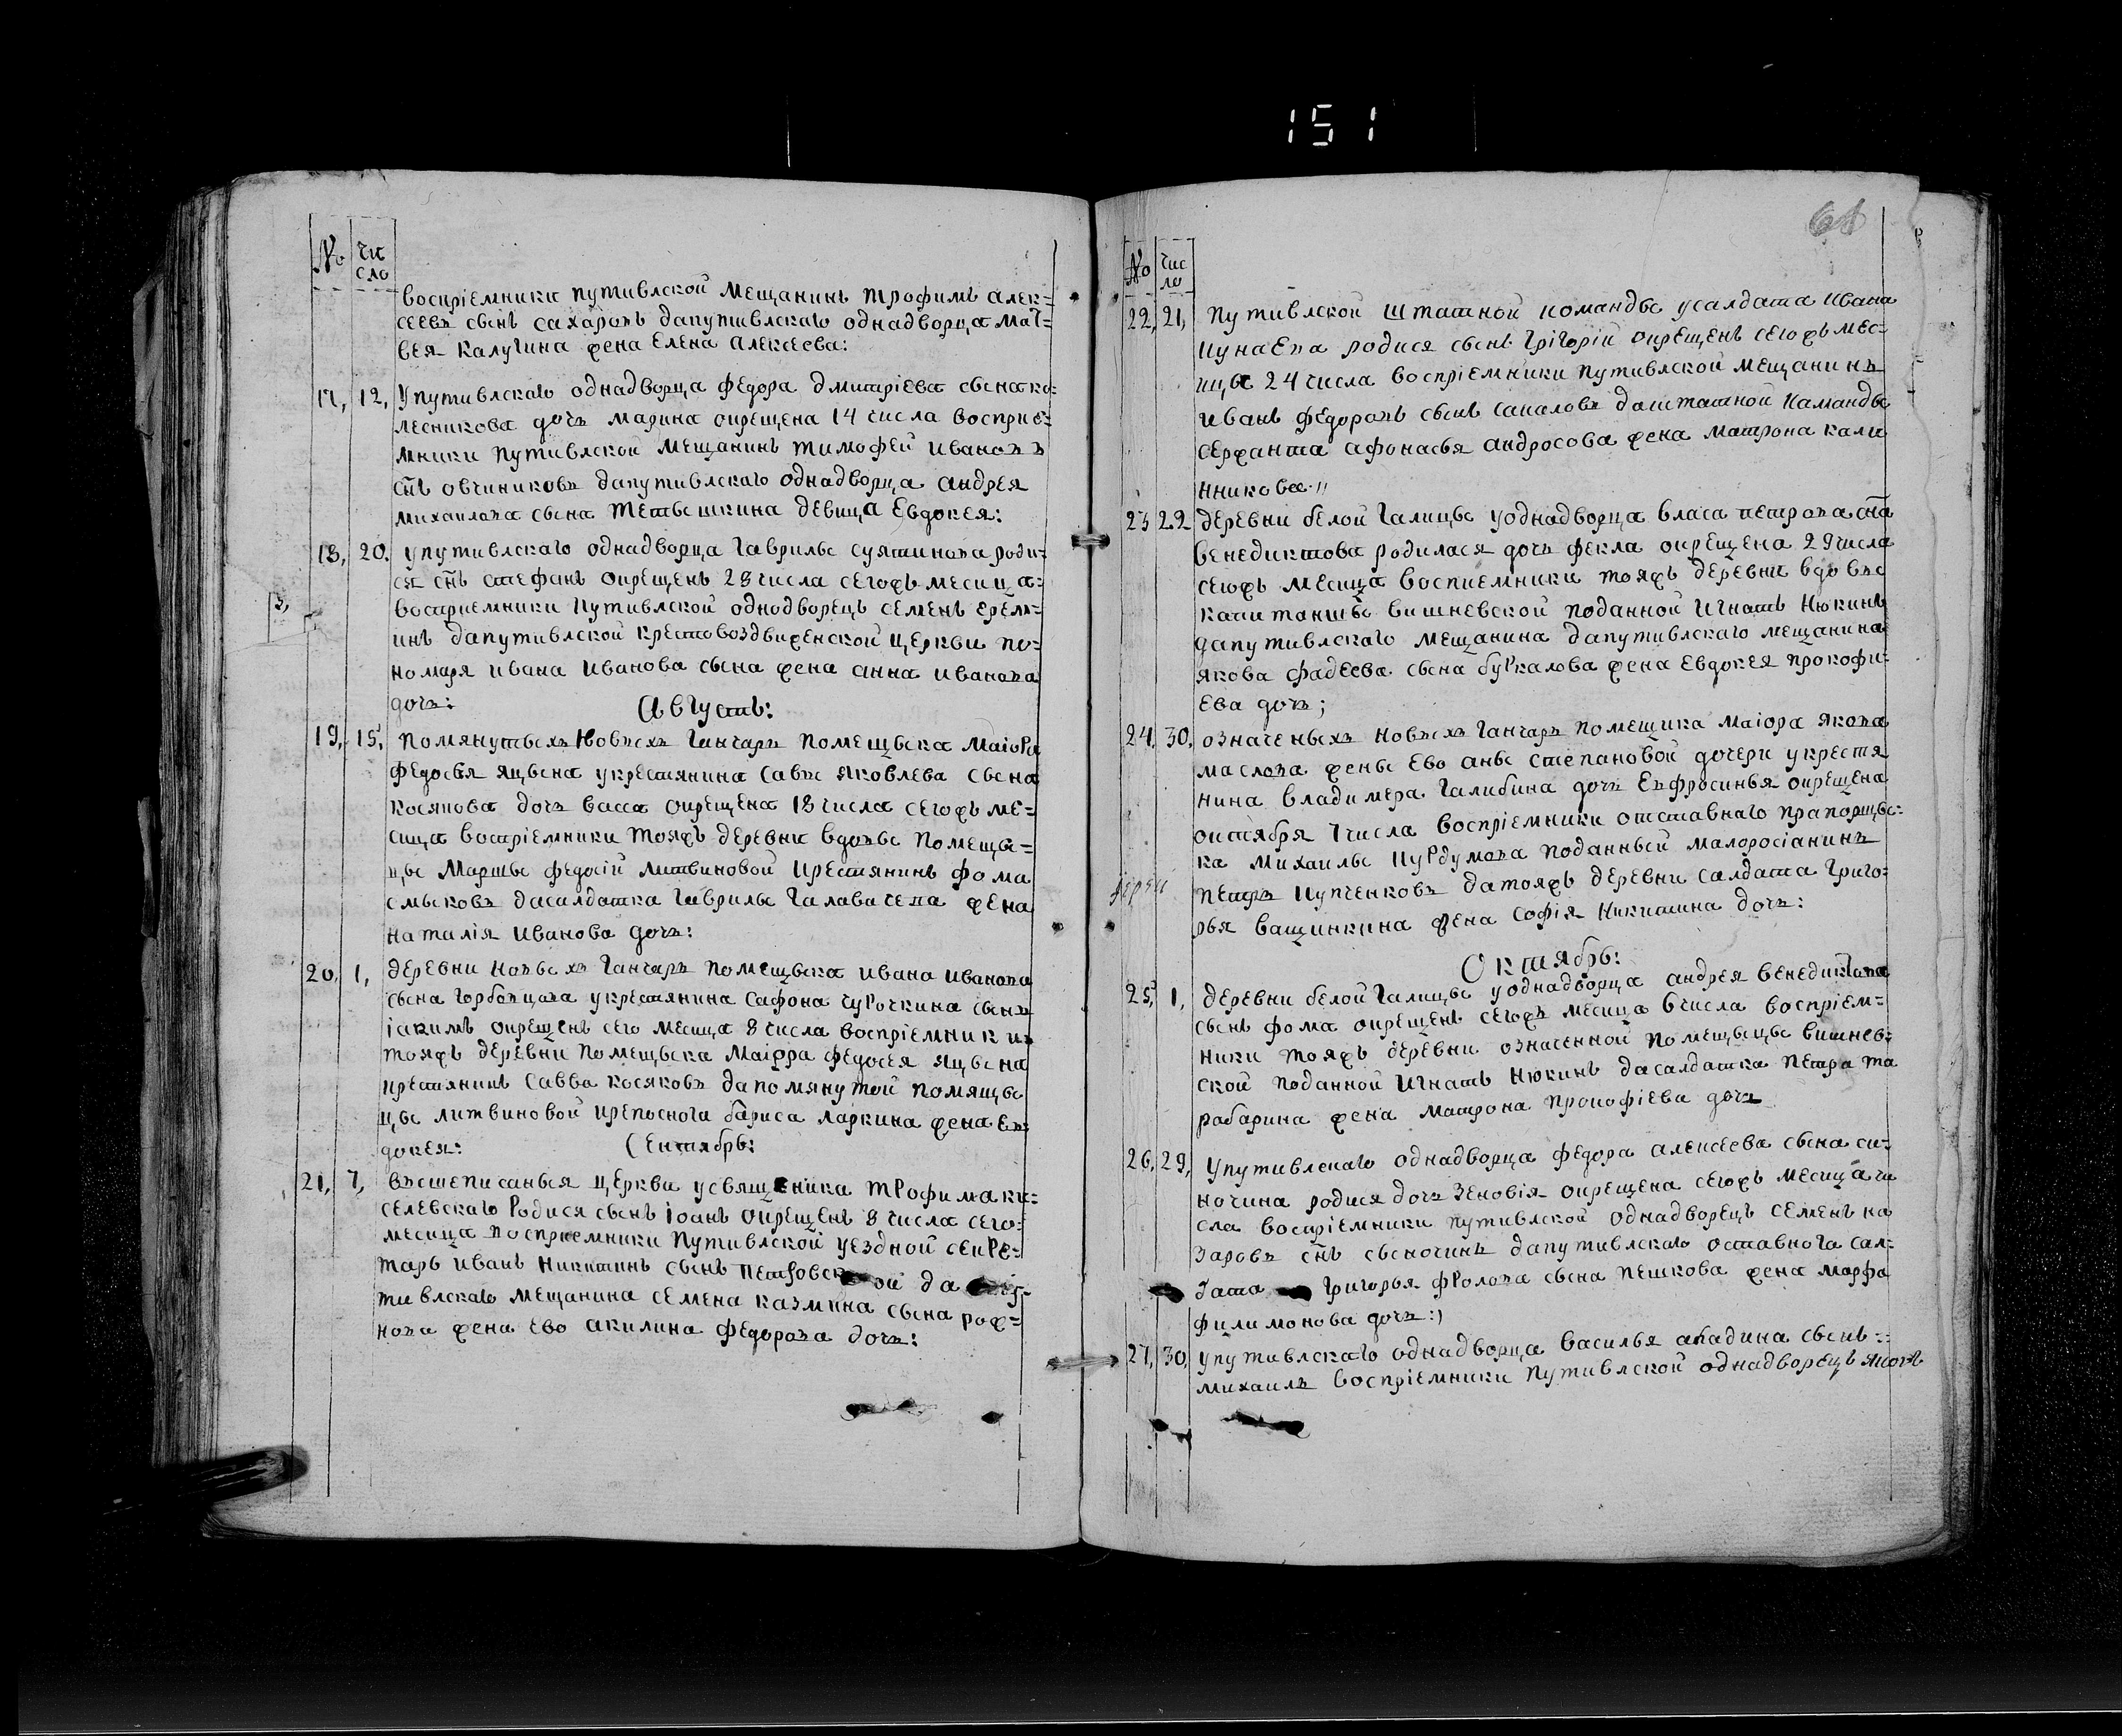 151
№ чи
сло
воспріемники путивлской мещанинъ трофимъ алек=
сеевъ сынъ сахаровъ дапутивлскаго однадворца мат=
вея калугина жена елена алексеева:
17, 12, Упутивлскаго однадворца федора дмитріева сына ко=
лесникова дочь марина окрещена 14 числа восприе=
мники путивлской мещанинъ тимофей ивановъ
снъ овчиниковъ дапутивлскаго однадворца андрея
михаилова сына девица евдокея:
18, 20. упутивлскаго однадворца гаврилы суятинова роди=
ся снъ стефанъ окрещенъ 28 числа сегожъ месица:
восприемники путивлской однодворецъ семенъ ерем=
инъ дапутивлской крестовоздвиженской церкви по=
номаря ивана иванова сына жена анна иванова
дочь:
Августъ:
19, 15, помянутыхъ новыхъ ганчаръ помещыка маіора
федосья яцына укрестянина савы яковлева сына
косякова дочь васса окрещена 18 числа сегожъ ме=
сица воспріемники тояжъ деревни вдовы помещы=
цы марты федосій литвиновой крестянинъ фома
смыковъ дасалдатка гаврилы галавачева жена
наталія иванова дочь:
20, 1, деревни новыхъ ганчаръ помещыка ивана иванова
сына горбовцова укрестянина сафона чурочкина сынъ
іакимъ окрещенъ сего месица 8 числа воспріемники
тояжъ деревни помещыка маіора федосея яцына
крестянинъ савва косяковъ дапомянутой помящы
цы литвиновой крепоснога бариса ларкина жена ев=
докея:
Сентябрь:
21, 7, вышеписаныя церкви усвященика трофима ки=
селевскаго родися сынъ іоанъ окрещенъ 8 числа сего=
месица восприемники путивлской уездной секре=
тарь иванъ никитинъ сынъ да
тивлскаго мещанина семена казмина сына рож=
нова жена ево акилина федорова дочь:
№ чис
ло
22, 21, путивлской штатной команды усалдата ивана
кунаева родися сынъ григорій окрещенъ сегожъ мес=
ицы 24 числа воспріемники путивлской мещанинъ
иванъ федоровъ сынъ сапаловъ даштатной каманды
сержанта афонасья андросова жена матрона кали
нникова
23 22 деревни белой галицы уоднадворца власа петрова сна
бенедиктова родилася дочь фекла окрещена 29 числа
сегожъ месица восприемники тояжъ деревни вдовы
капитаншы вишневской поданной игнатъ нюкинъ
дапутивлскаго мещанина дапутивлскаго мещанина
якова фадеева сына буркалова жена евдокея прокофи=
ева дочь;
24, 30, означеныхъ новыхъ ганчаръ помещика маіора якова
маслова жены ево аны степановой дочери укрестя
нина владимера галибина дочь евфросинья окрещена
октября 7 числа воспріемники отставнаго прапорщы=
ка михаилы курдумова поданный малоросіанинъ
петръ купченковъ датояжъ деревни салдата григо=
рья ващинкина жена софія никитина дочь:
Октябрь:
25, 1, деревни белой галицы уоднадворца андрея венедиктова
сынъ фома окрещенъ сегожъ месица 6 числа воспріем=
ники тояжъ деревни означенной помещыцы вишнев=
ской поданной игнатъ нюкинъ дасалдатка петра та
рабарина жена матрона прокофіева дочь
26, 29, Упутивлскаго однадворца федора алексеева сына си=
ночина родися дочь зеновія окрещена сегожъ месица чи
сла воспріемники путивлской однадворецъ семенъ на
заровъ снъ дапутивлскаго оставнога сал=
дата григорья фролова сына пешкова жена марфа
филимонова дочь:
27, 30, упутивлскаго однадворца василья абадина сынъ
михаилъ воспріемники путивлской однадворецъ яковъ